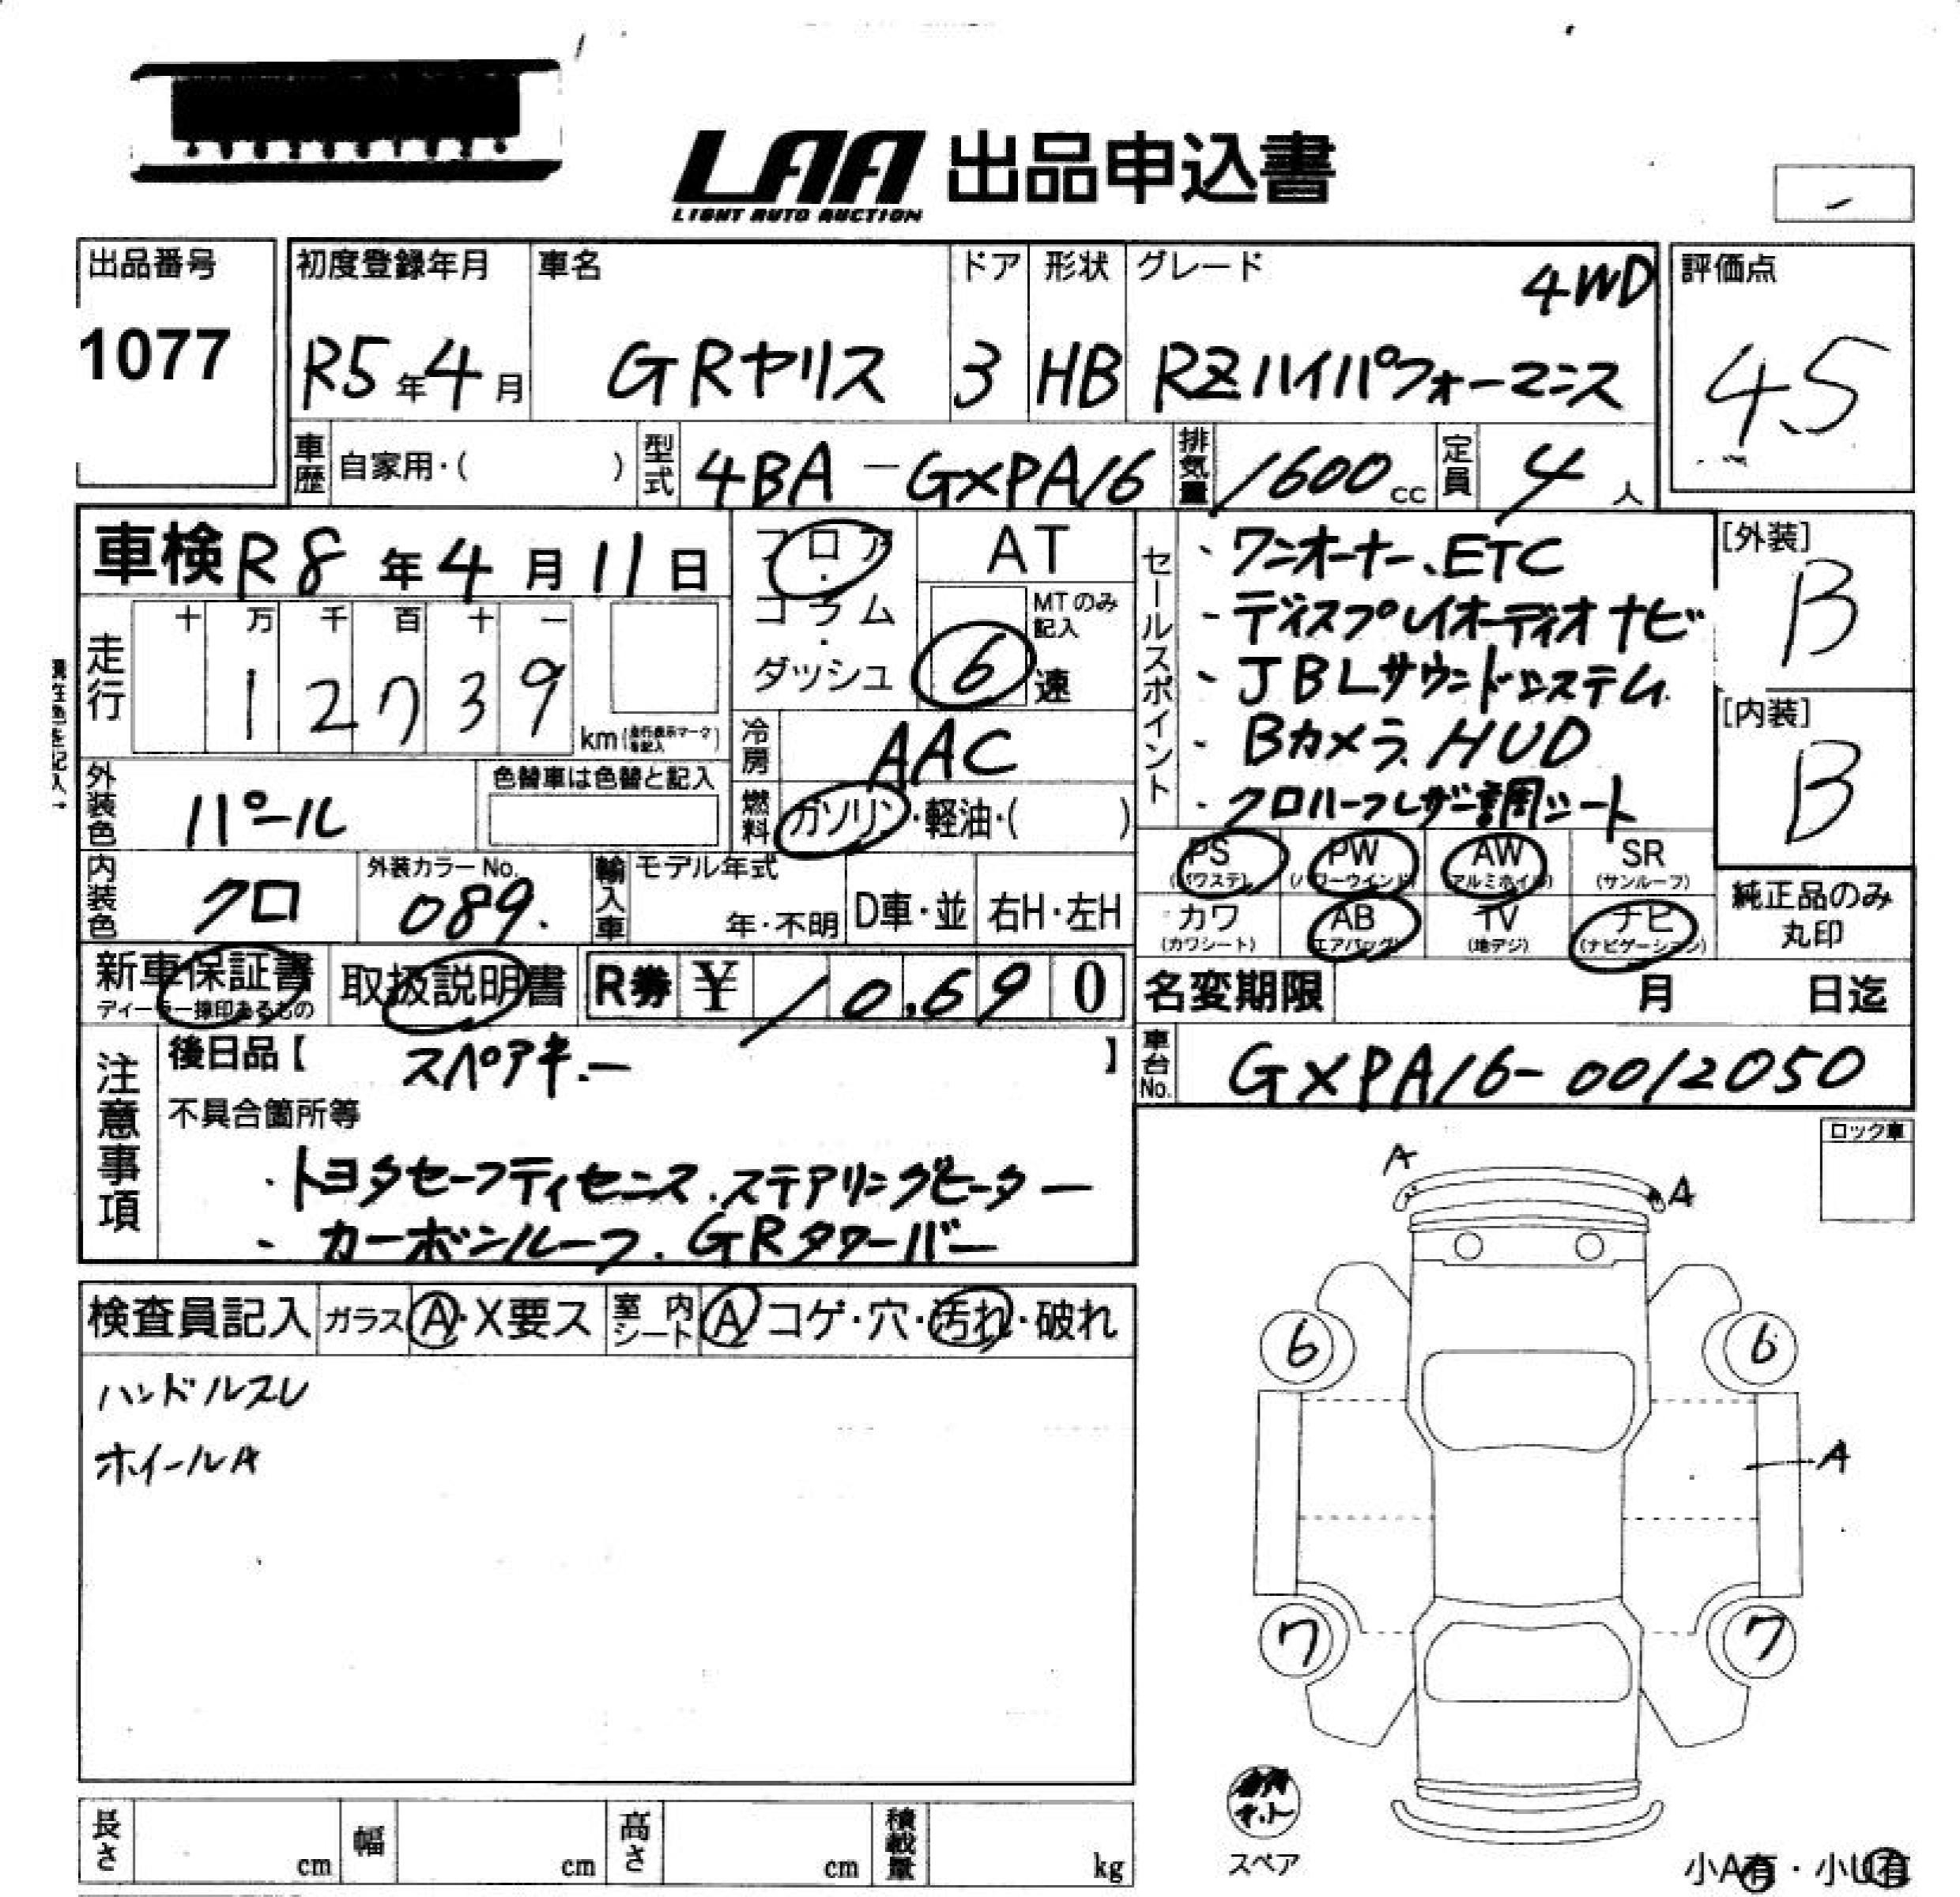 LAA 出品申込書
LIGHT AUTO AUCTION
-
出品番号
1077
初度登録年月
R5年4月
車名
GRヤリス
ドア
3
形状
HB
グレード
4WD
RZハイパフォーマンス
評価点
4.5
車歴 自家用・( )
型式 4BA-GXPA16
排気量 1600cc
定員 4人
車検 R8年4月11日
走行
十 万 千 百 十 一
1 2 7 3 9
km
フロア・
コラム・
ダッシュ
AT
MTのみ記入
6速
冷房 AAC
燃料 ガソリン・軽油・( )
外装色 パール
色替車は色替と記入
内装色 クロ
外装カラーNo.
089.
輸入車
モデル年式
年・不明
D車・並
右H・左H
新車保証書
ディーラー捺印あるもの
取扱説明書
R券 ¥ 10,690
セールスポイント
・ワンオーナー、ETC
・ディスプレイオーディオナビ
・JBLサウンドシステム
・Bカメラ、HUD
・クロハーフレザー調シート
[外装]
B
[内装]
B
PS (パワステ)
PW (パワーウインド)
AW (アルミホイル)
SR (サンルーフ)
カワ (カワシート)
AB (エアバッグ)
TV (地デジ)
ナビ (ナビゲーション)
純正品のみ
丸印
名変期限 月 日迄
車台No. GXPA16-0012050
注意事項
後日品【 スペアキー 】
不具合箇所等
・トヨタセーフティセンス.ステアリングヒーター
・カーボンルーフ.GRタワーバー
ロック車
検査員記入
ガラス A・X要ス
室内シート A コゲ・穴・汚れ・破れ
ハンドルスレ
ホイールA
A
A
6
6
A
7
7
スペア
小A有・小U有
長さ cm
幅 cm
高さ cm
積載量 kg